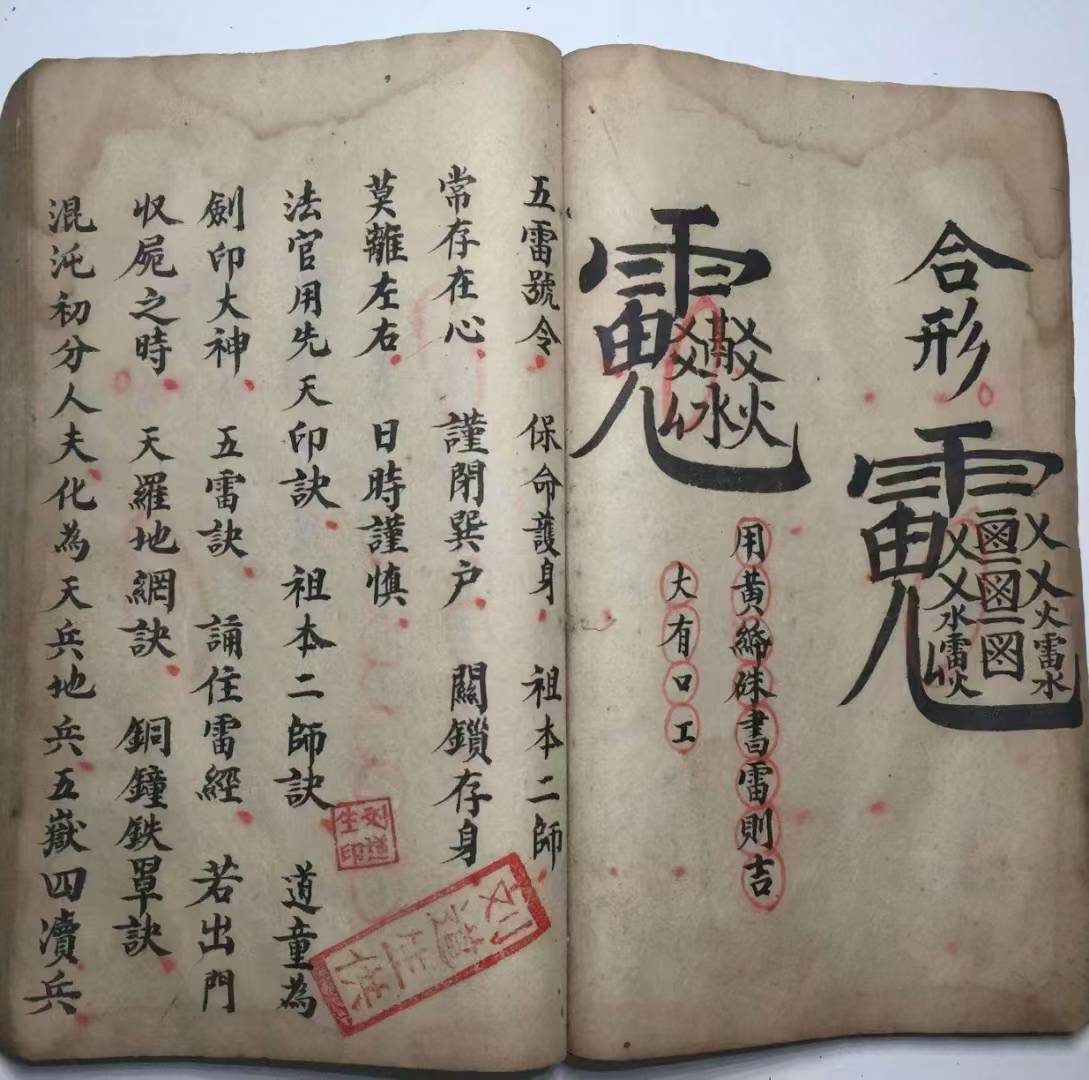 合形
用黄紙硃書雷則吉
大有口工
五雷號令 保命護身 祖本二師
常存在心 謹閉巽户 關鎖存身
莫離左右 日時謹慎
法官用先天印訣 祖本二師訣 道童為
劍印大神 五雷訣 誦住雷經 若出門
収屍之時 天羅地網訣 銅鐘鉄罩訣
混沌初分人夫化為天兵地兵五嶽四瀆兵